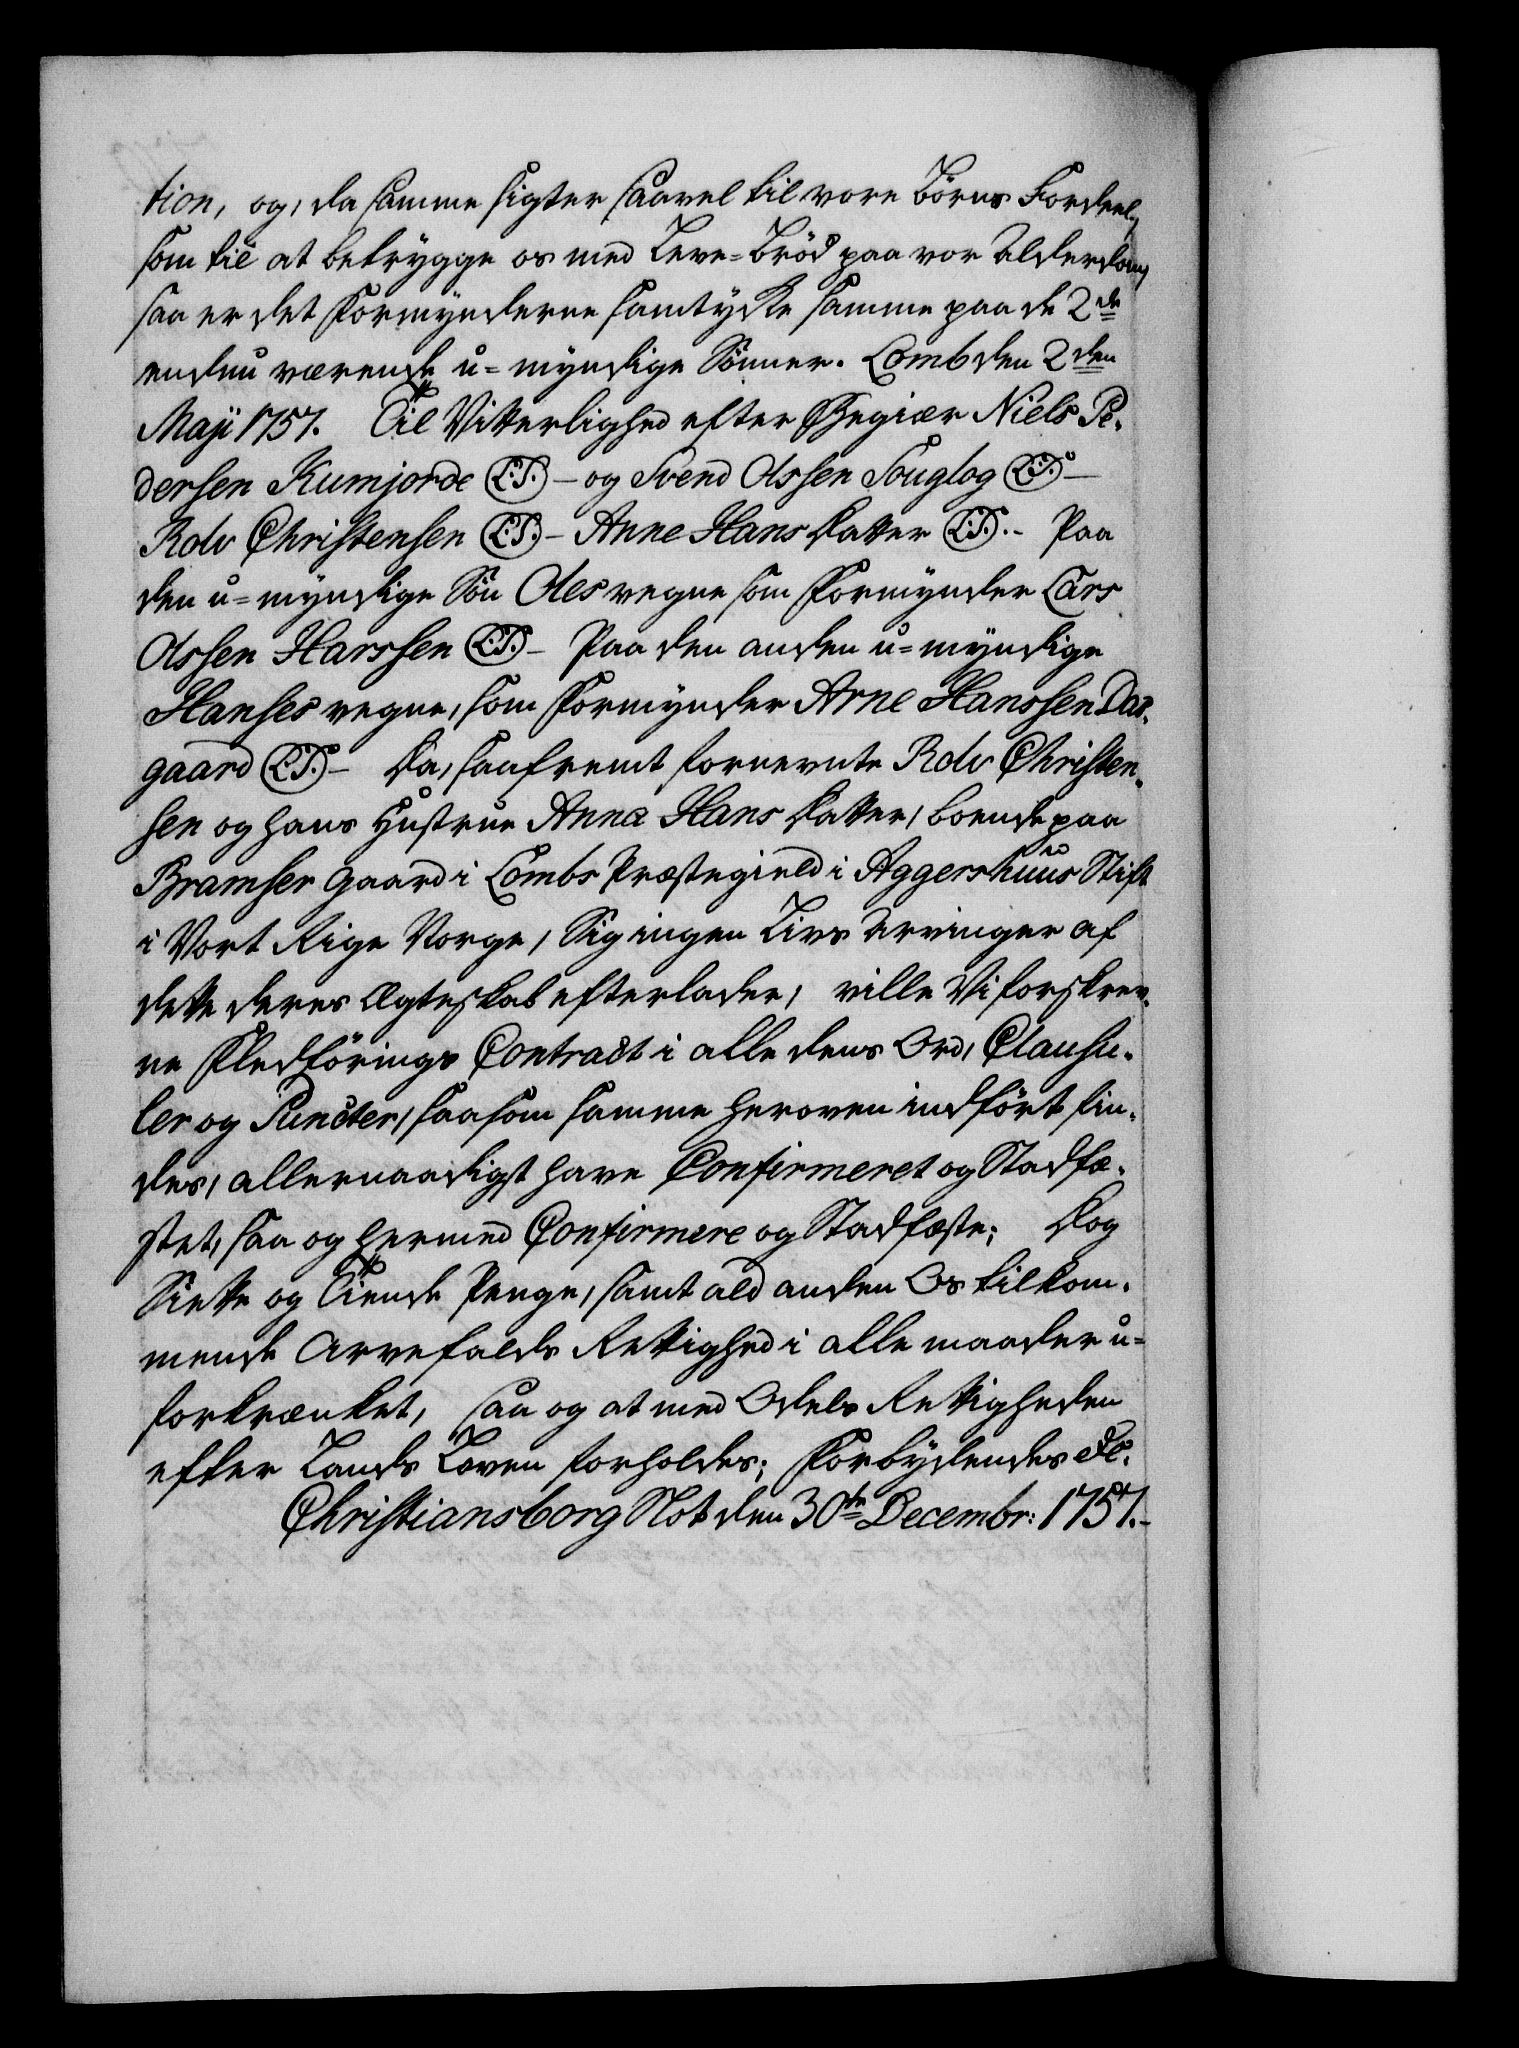 tion, og, da samme sigter saavel til vore Börns Fordeel,
som til at betrygge os med Leve-Bröd paa vor Alderdom,
saa er det Formynderne samtykte samme paa de 2de
endnu værende u-myndige Sönner. Lomb den 2den
Maji 1757. Til Vitterlighed efter Begiær Niels Pe-
dersen Kumjorde (L.S.) - og Svend Olssen Souglog (L.S.) -
Rolv Christensen (L.S.) - Anne Hans Datter (L.S.). - Paa
den u-myndige Sön Oles vegne som Formynder Lars
Olssen Harssen (L.S.) - Paa den anden u-myndige
Hanses vegne, som Formynder Arne Hanssen Dal-
gaard (L.S.) - Da, saafremt fornevnte Rolv Christen-
sen og hans Hustrue Anna Hans Datter, boende paa
Bramser Gaard i Lombs Præstegield i Aggershuus Stift
i Vort Rige Norge, Sig ingen Livs Arvinger af
dette deres Ægteskab efterlader, ville Vi forskrev-
ne Fledförings Contract i alle dens Ord, Clausu-
ler og Puncter, saasom samme heroven indfört fin-
des, allernaadigst have Confirmeret og Stadfæ-
stet, saa og hermed Confirmere og Stadfæste; Dog
Siette og Tiende Penge, samt ald anden Os tilkom-
mende Arvefalds Rettighed i alle maader u-
forkrænket, saa og at med Odels Rettigheden
efter Lands Loven forholdes; Forbydendes etc.
Christiansborg Slot den 30te Decembr: 1757.-